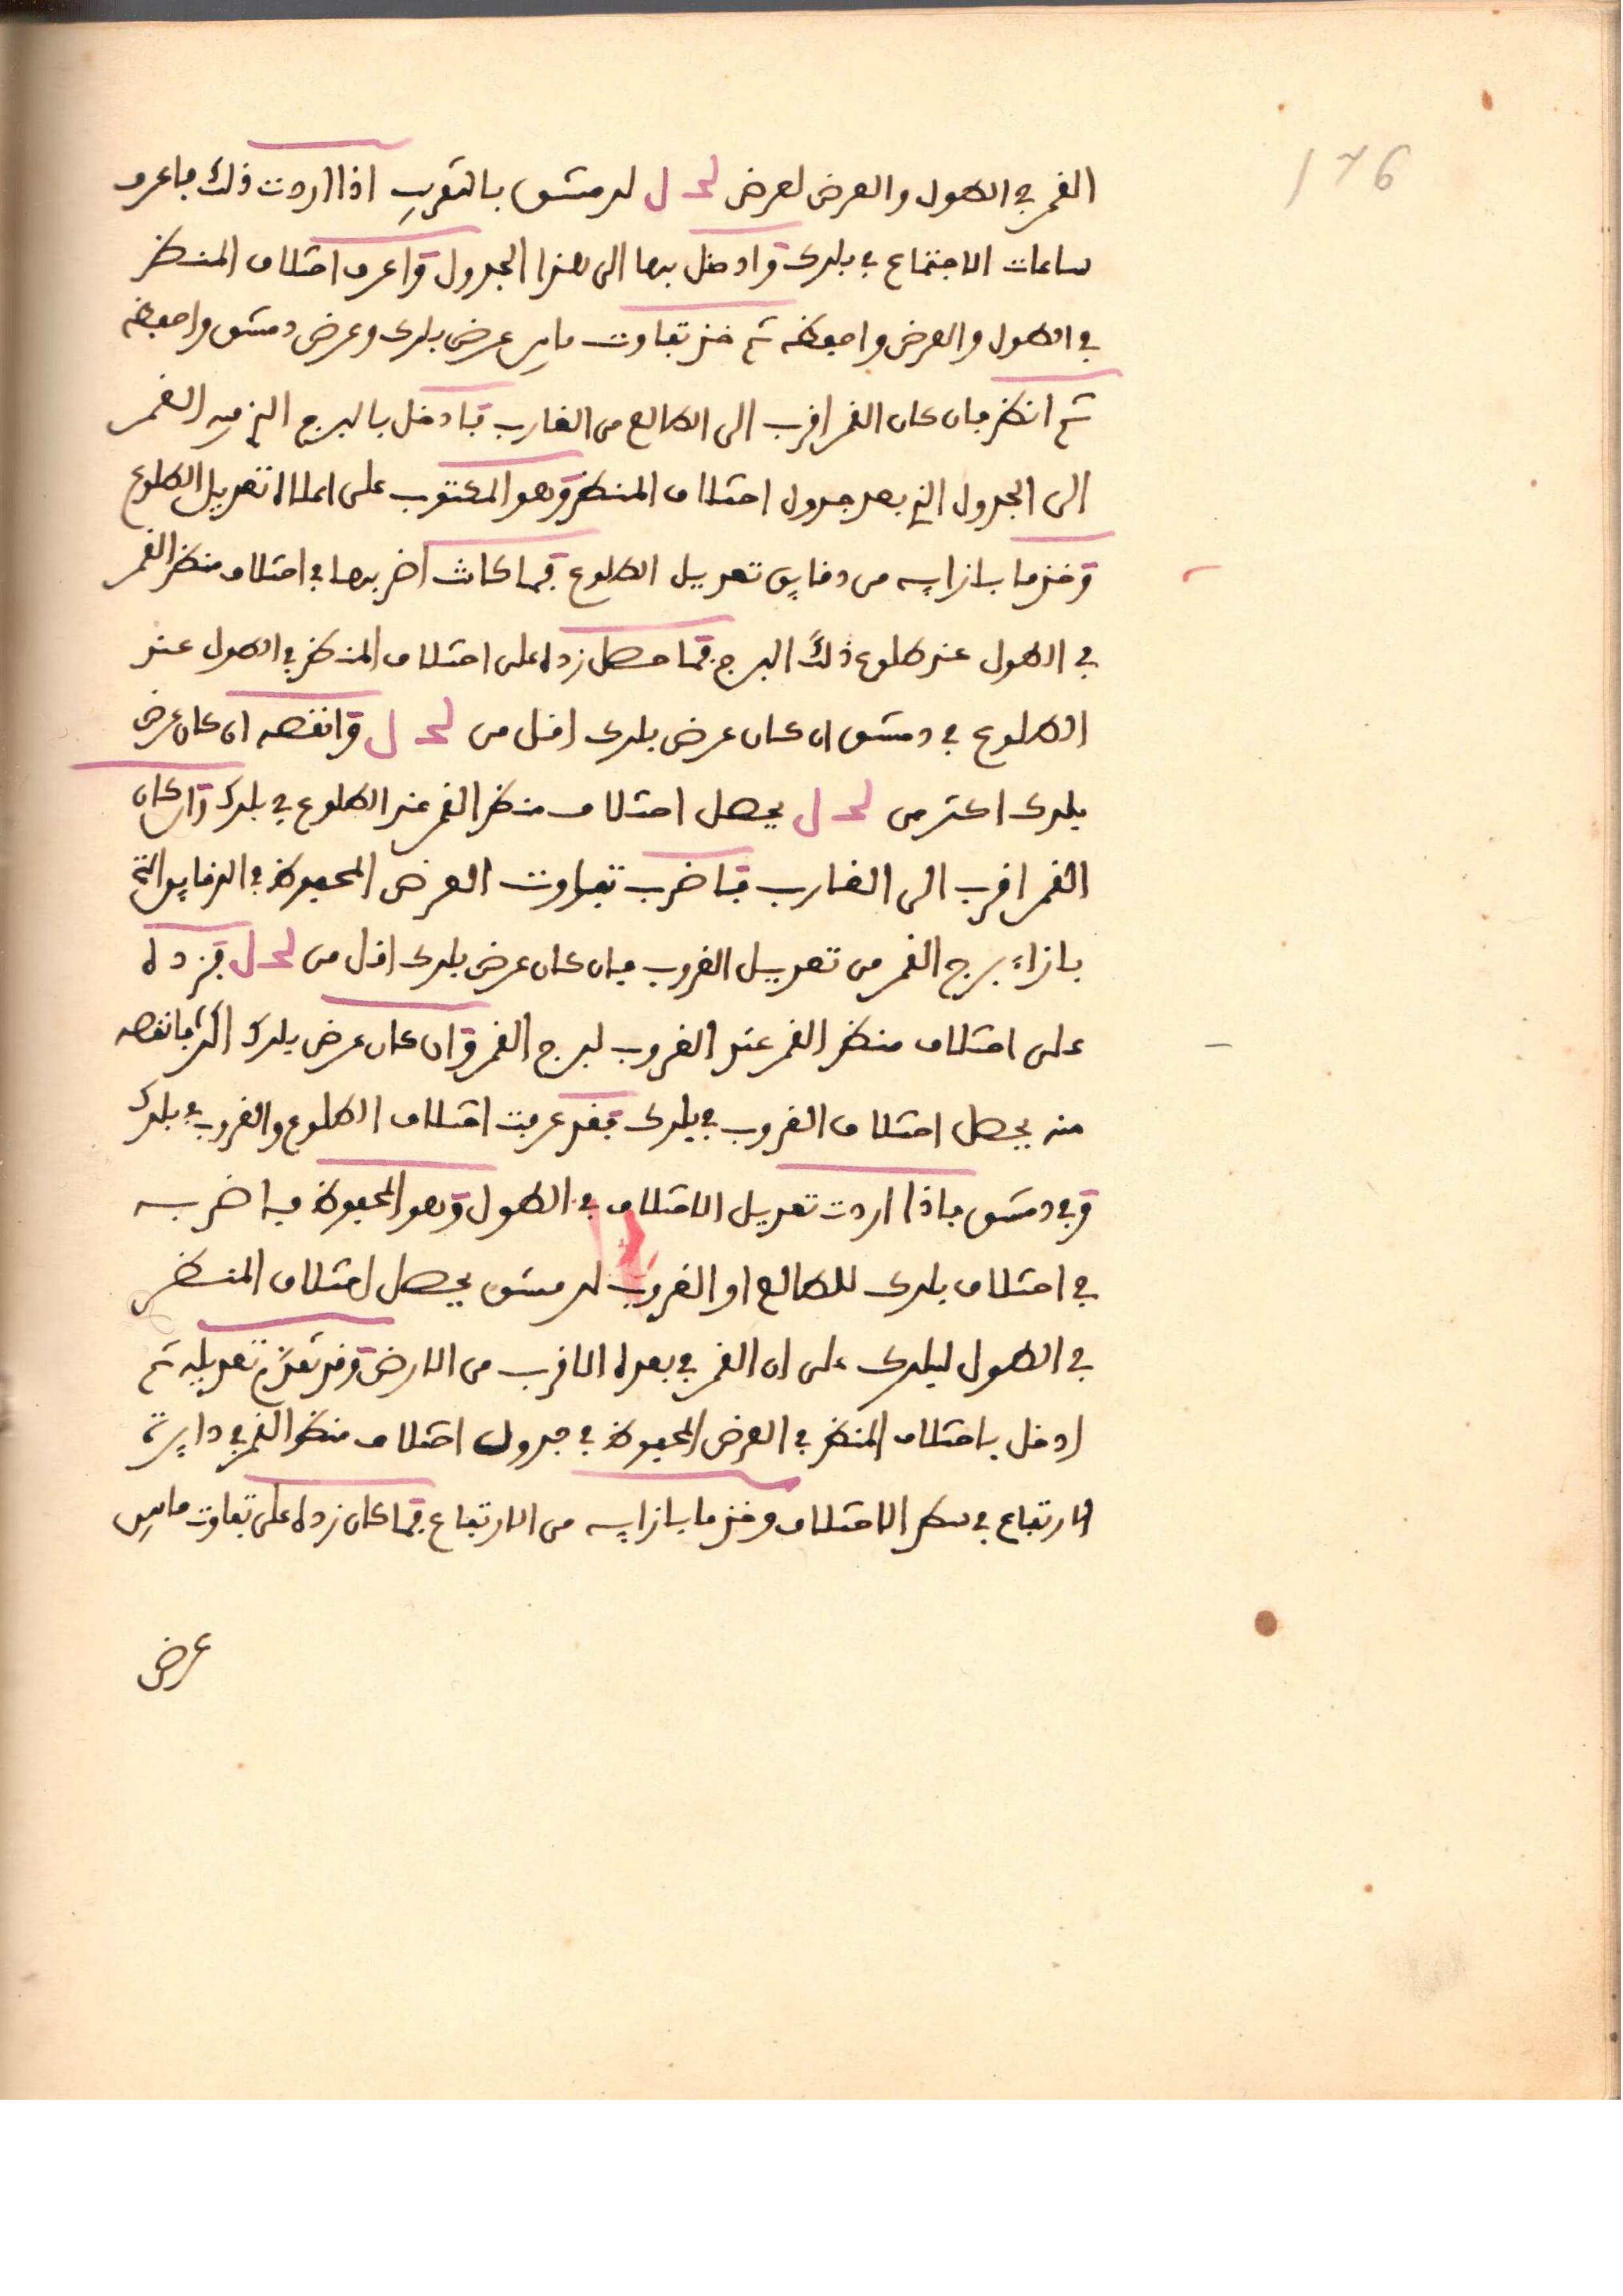 176
القمر في الطول والعرض لعرض لحـ ل لدمشق بالتقريب اذا اردت ذلك فاعرف
ساعات الاجتماع في بلدك وادخل بها الى هذا الجدول واعرف اختلاف المنظر
في الطول والعرض واحفظه ثم خذ تفاوت مابين عرض بلدك وعرض دمشق واحفظه
ثم انظر فان كان القمر اقرب الى الطالع من الغارب فادخل بالبرج الذي فيه القمر
الى الجدول الذي بعد جدول اختلاف المنظر وهو المكتوب على اعلاه تعديل الطلوع
وخذ ما بازايه من دقايق تعديل الطلوع فما كانت اضربها في اختلاف منظر القمر
في الطول عند طلوع ذلك البرج فما حصل زده على اختلاف المنظر في الطول عند
الطلوع في دمشق ان كان عرض بلدك اقل من لحـ ل وانقصه ان كان عرض
بلدك اكثر من لحـ ل يحصل اختلاف منظر القمر عند الطلوع في بلدك وان كان
القمر اقرب الى الغارب فاضرب تفاوت العرض المحفوظ في الدقايق التي
بازاء برج القمر من تعديل الغروب فان كان عرض بلدك اقل من لحـ ل فزده
على اختلاف منظر القمر عند الغروب لبرج القمر وان كان عرض بلدك اكثر فانقصه
منه يحصل اختلاف الغروب في بلدك فقد عرفت اختلاف الطلوع والغروب في بلدك
وفي دمشق فاذا اردت تعديل الاختلاف في الطول وهو المحفوظ فاضربه
في اختلاف بلدك للطالع او الغروب لدمشق يحصل اختلاف المنظر
في الطول لبلدك على ان القمر في بعده الاقرب من الارض وقد تقدم تعديله ثم
ادخل باختلاف المنظر في العرض المحفوظ في جدول اختلاف منظر القمر في دايرة
الارتفاع في سطر الاختلاف وخذ ما بازايه من الارتفاع فما كان زده على تفاوت مابين
عرض